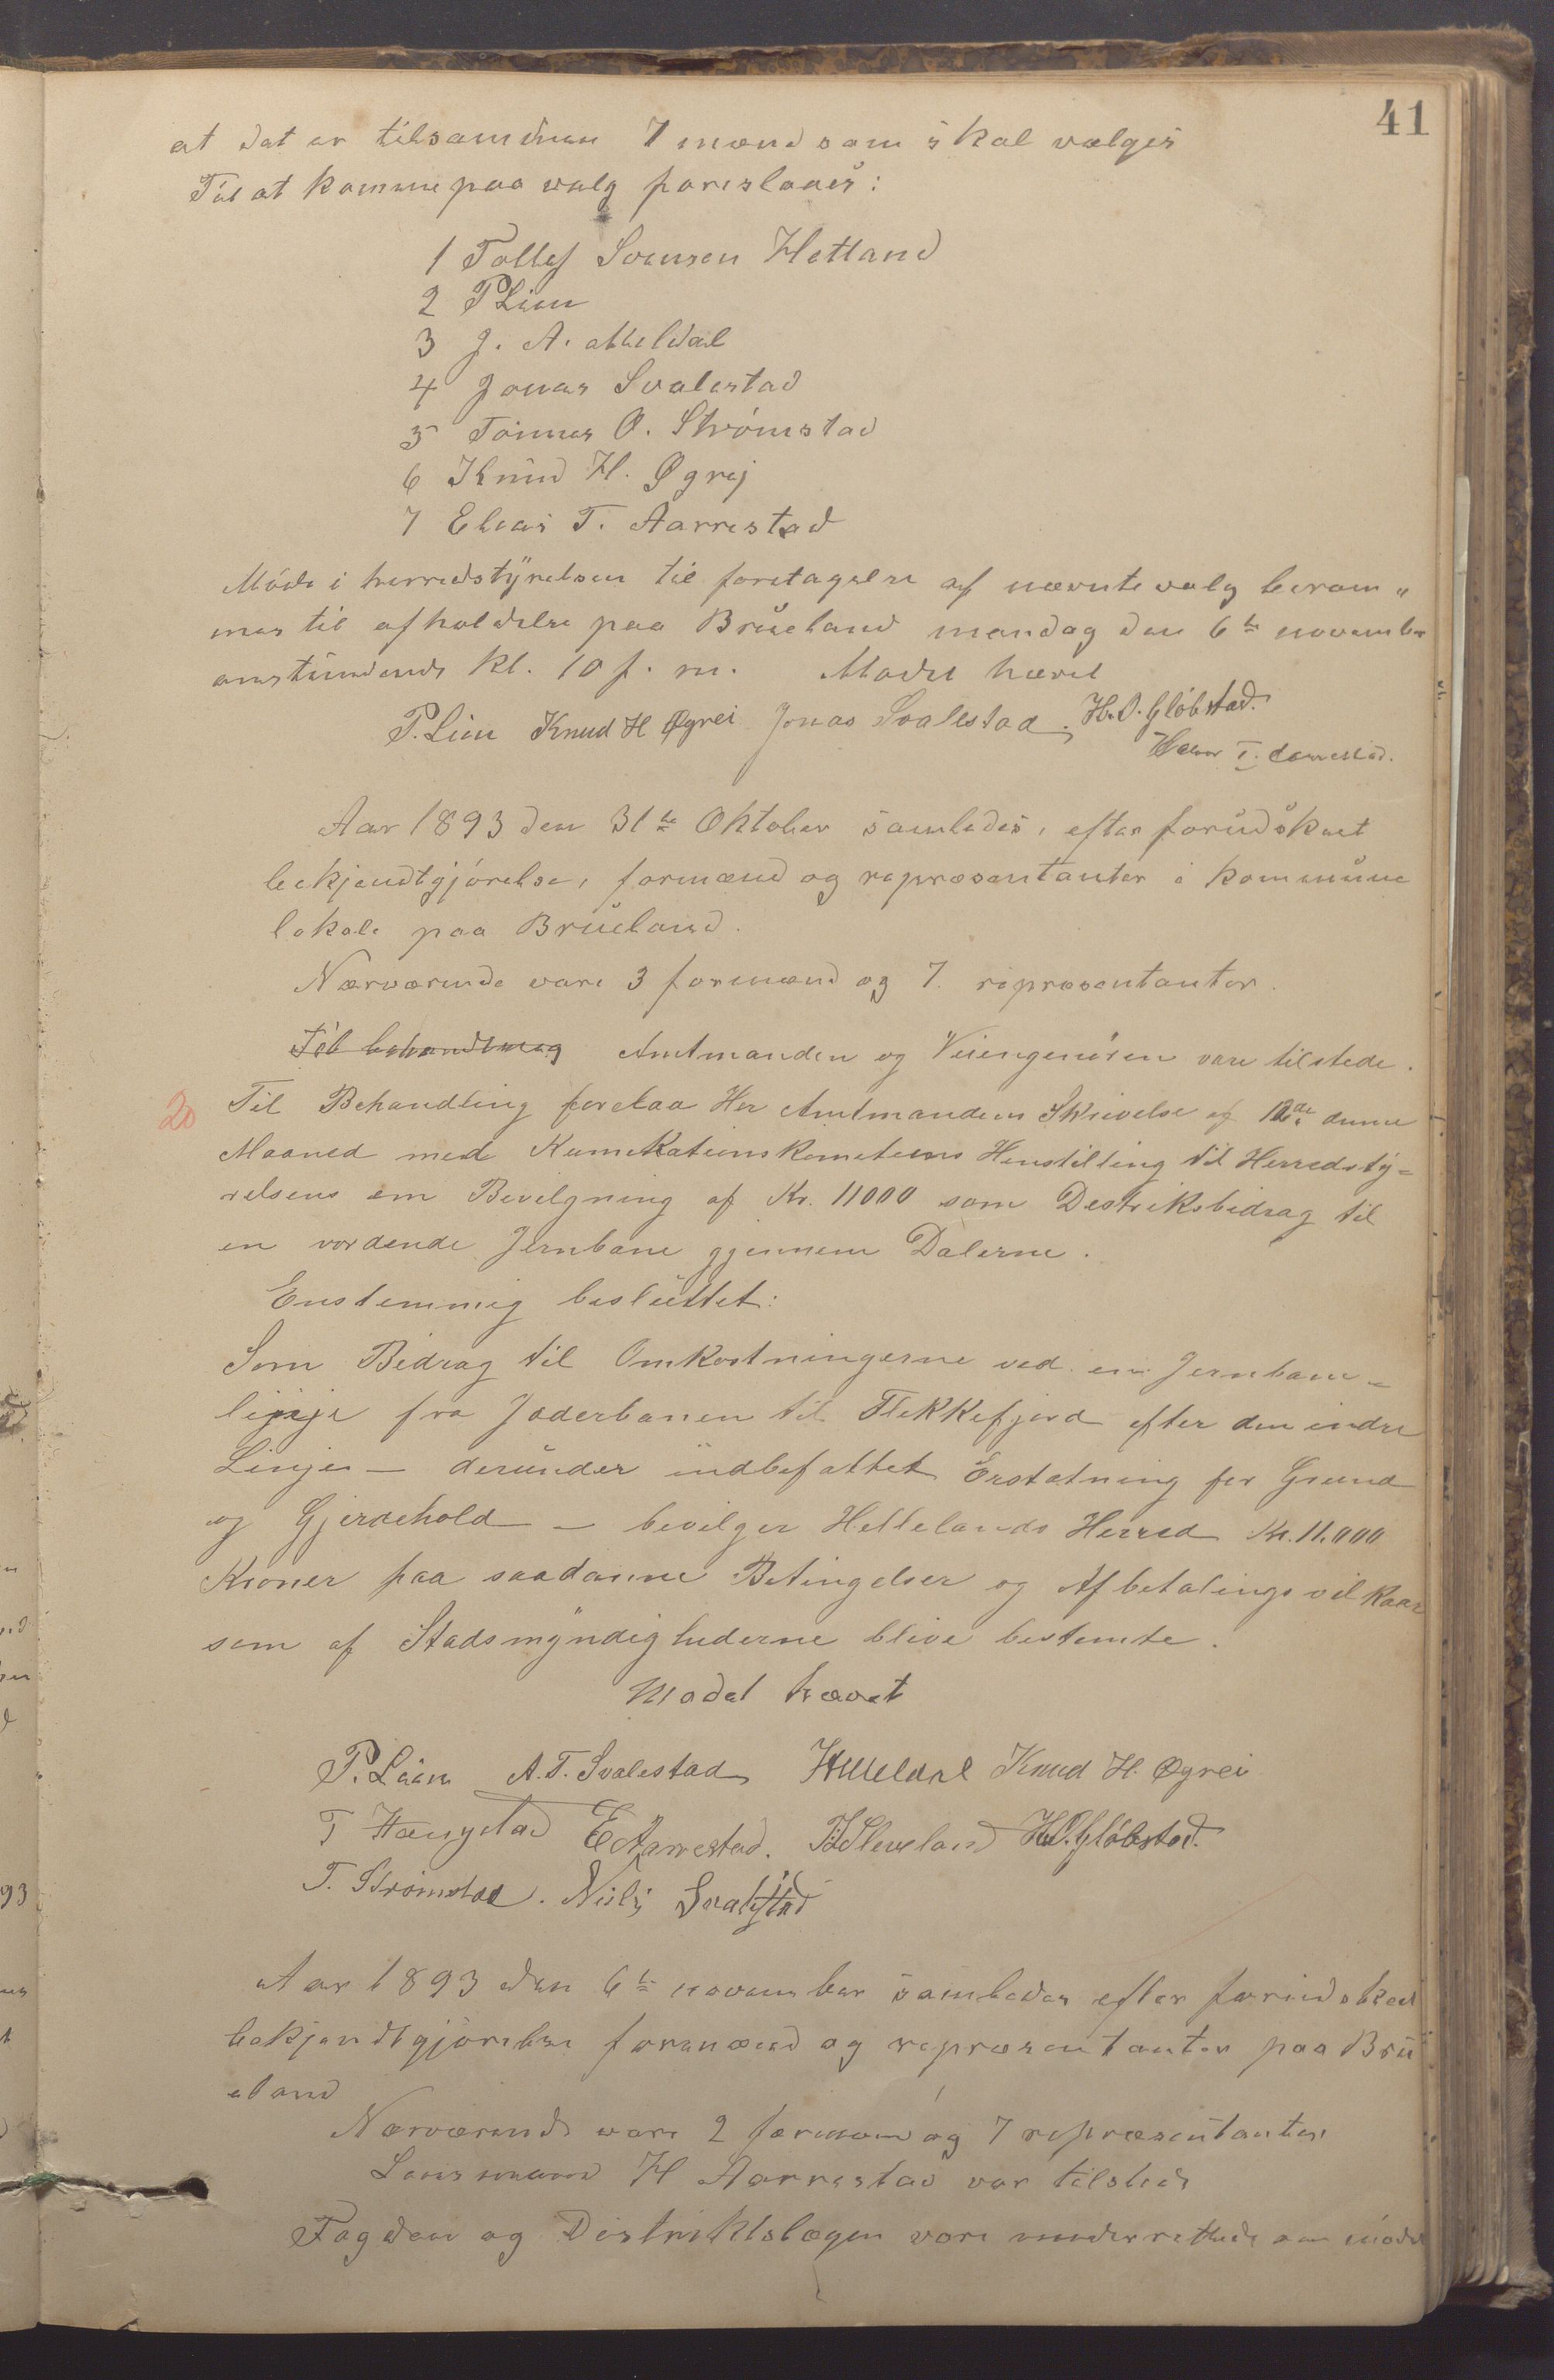 41
at det er tilsammen 7 mænd som skal vælges
Til at komme paa valg foreslaaes:
1 Tollef Svensen Hetland
2 P Liem
3 J. A. Meldal
4 Jonas Svalestad
5 Tønnes O. Strømstad
6 Knud H. Øgrej
7 Elias T. Aarrestad
Møde i herredstyrelsen til foretagelse af nævnte valg beram„
mes til afholdelse paa Brueland mandag den 6te november
anstundende kl. 10 f. m. Mødet hævet
P. Liem Knud H Øgrei Jonas Svalestad. H. O. Gløbstad.
T. Aarrestad.
Aar 1893 den 31te Oktober samledes, efter forudskeet
bekjendtgjørelse, formænd og repræsentanter i kommune
lokale paa Brueland.
Nærværende vare 3 formænd og 7 repræsentanter.
Til behandling Amtmanden og Veiingeniøren vare tilstede.
20 Til Behandling forelaa Her Amtmandens Skrivelse af 12de denne
Maaned med Kumikationskometeens Henstilling til Herredsty=
relsens om Bevilgning af Kr. 11000 som Destriksbidrag til
en vordende Jernbane gjennem Dalerne.
Enstemmig besluttet:
Som Bidrag til Omkostningerne ved en Jernbane=
linje fra Jæderbanen til Flekkefjord efter den indre
Linje — derunder indbefattet Erstatning for Grund
og Gjerdehold — bevilger Hetlands Herred Kr. 11.000
Kroner paa saadanne Betingelser og Afbetalingsvilkaar
som af Stadsmyndighederne blive bestemte.
Mødet hævet
P. Liem A. T. Svalestad Meldal Knud H. Øgrei
T Hængstad E Aarrestad. Sleveland H. O. Gløbstad.
T. Strømstad. Nils Svalestad
Aar 1893 den 6te november samledes efter forudskeet
bekjendtgjørelse formænd og repræsentanter paa Bru
eland
Nærværende vare 2 formænd og 7 repræsentanter
Lensmand H Aarrestad var tilstede
Fogden og Distriktslægen vare underrettede om mødet